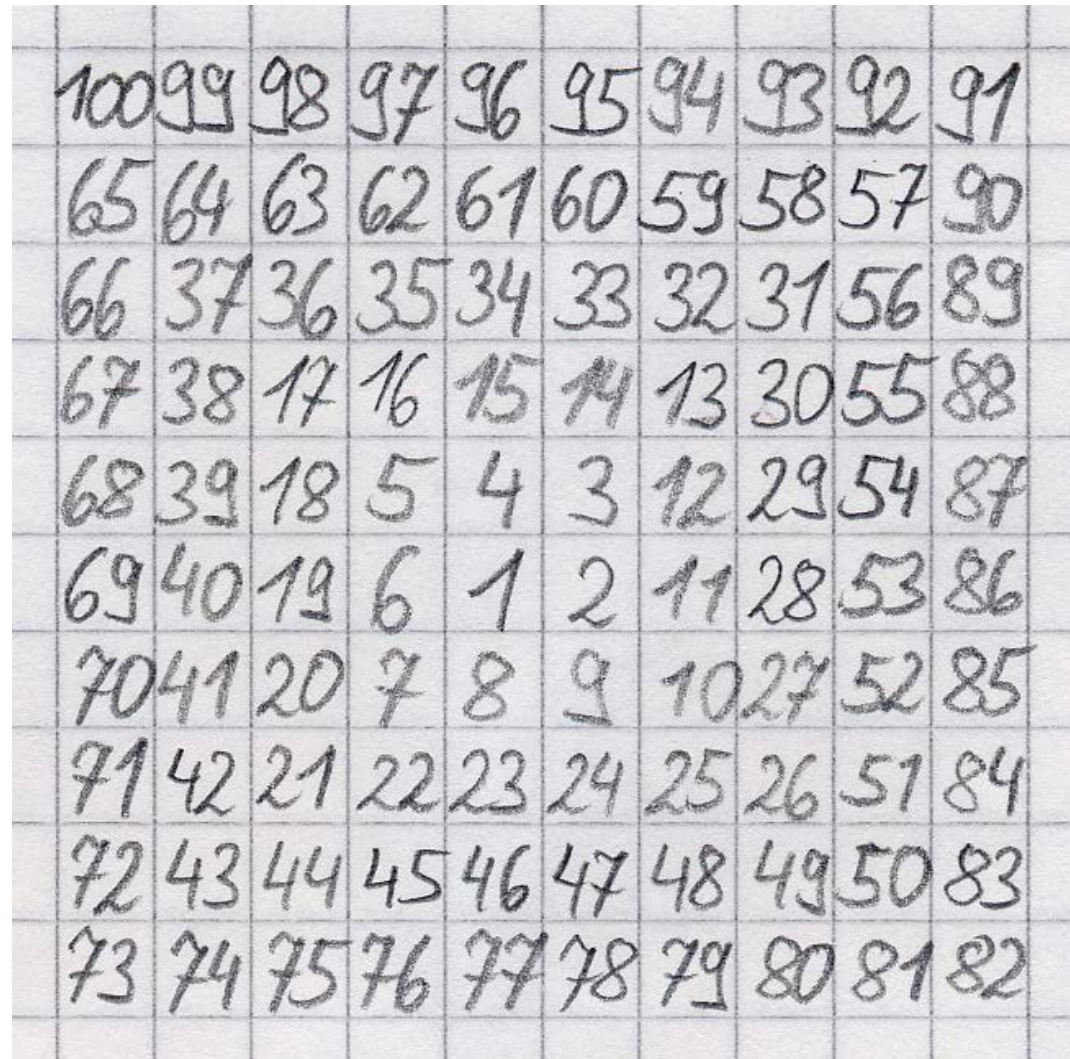 100 99 98 97 96 95 94 93 92 91
65 64 63 62 61 60 59 58 57 90
66 37 36 35 34 33 32 31 56 89
67 38 17 16 15 14 13 30 55 88
68 39 18 5 4 3 12 29 54 87
69 40 19 6 1 2 11 28 53 86
70 41 20 7 8 9 10 27 52 85
71 42 21 22 23 24 25 26 51 84
72 43 44 45 46 47 48 49 50 83
73 74 75 76 77 78 79 80 81 82